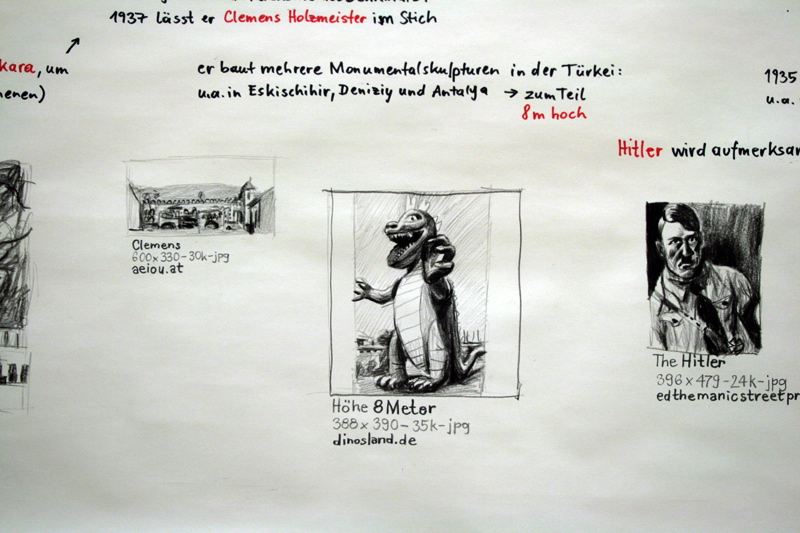 1937 lässt er Clemens Holzmeister im Stich
kara, um
nenen)
er baut mehrere Monumentalskulpturen in der Türkei:
u.a. in Eskischihir, Deniziy und Antalya → zum Teil
8m hoch
1935
u.a.
Hitler wird aufmerksam
Clemens
600x330-30k-jpg
aeiou.at
Höhe 8 Meter
388x390-35k-jpg
dinosland.de
The Hitler
396x479-24k-jpg
edthemanicstreetpr